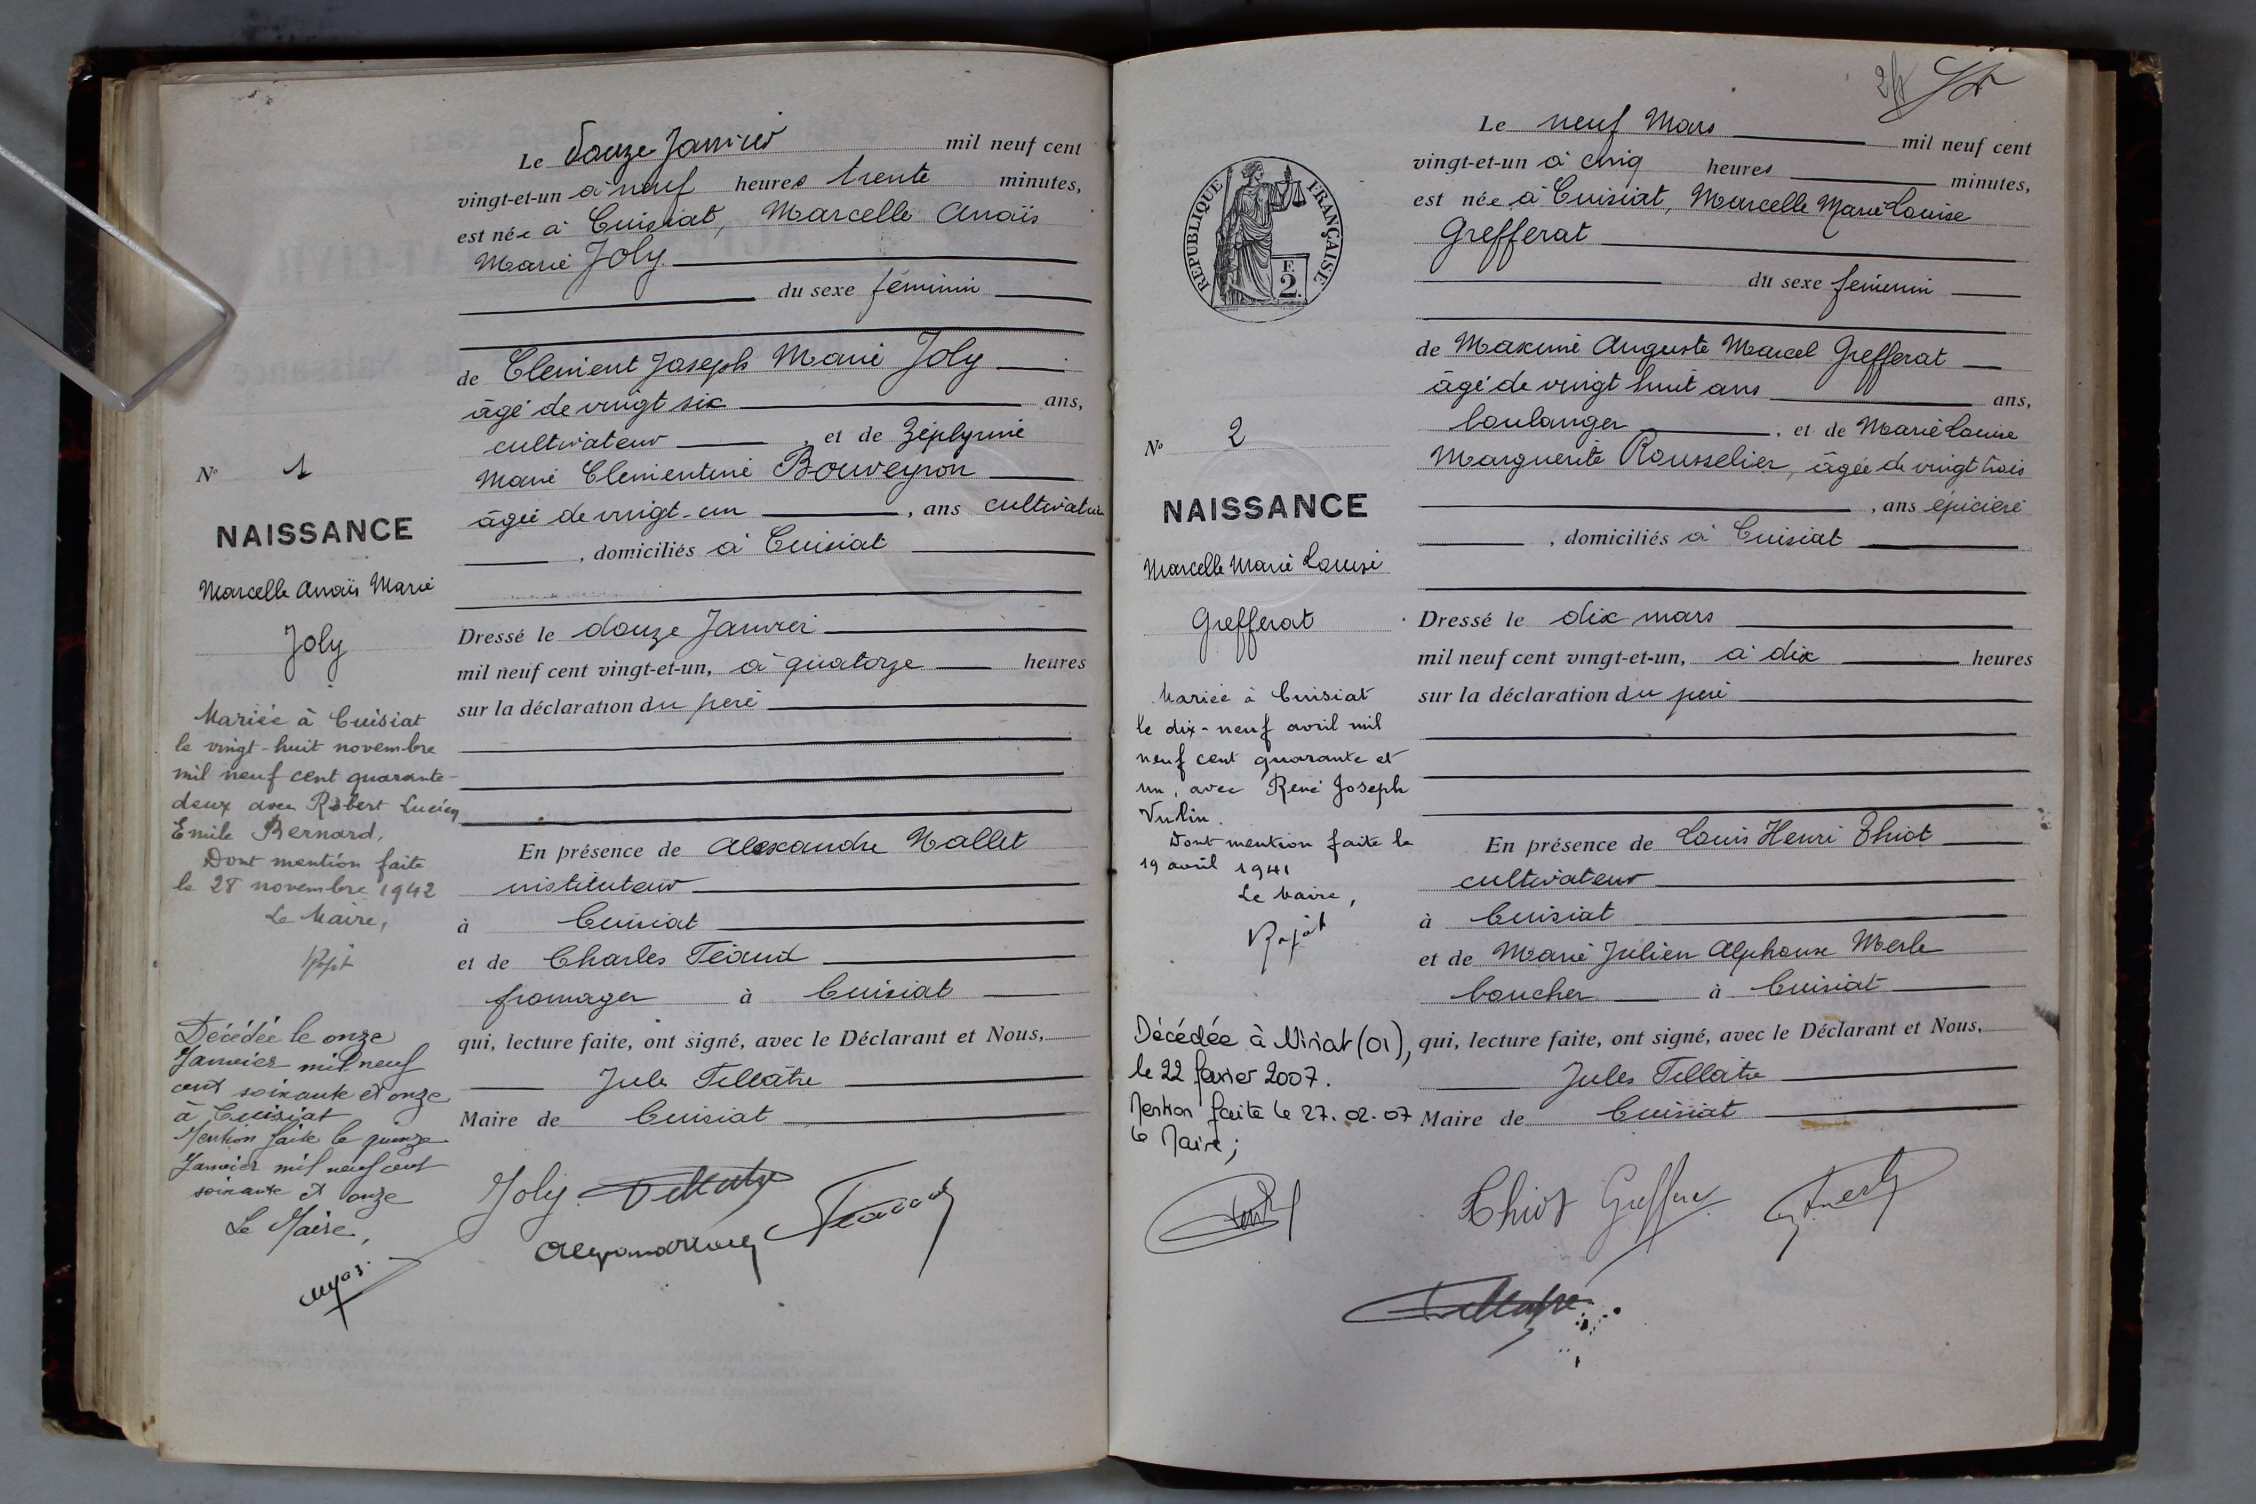 Le douze Janvier mil neuf cent
vingt-et-un à neuf heures trente minutes,
est née à Cuisiat, Marcelle Anaïs
Marie Joly
du sexe féminin
de Clément Joseph Marie Joly
âgé de vingt six ans,
cultivateur, et de Zéphyrine
Marie Clémentine Bouveyron
âgée de vingt-un, ans cultivatrice
, domiciliés à Cuisiat
Dressé le douze Janvier
mil neuf cent vingt-et-un, à quatorze heures
sur la déclaration du père
En présence de Alexandre Mallet
instituteur
à Cuisiat
et de Charles Féaud
fromager à Cuisiat
qui, lecture faite, ont signé, avec le Déclarant et Nous,
Jules Tellatre
Maire de Cuisiat
Joly
N° 1
NAISSANCE
Marcelle Anaïs Marie
Joly
Mariée à Cuisiat
le vingt-huit novembre
mil neuf cent quarante-
deux avec Robert Lucien
Emile Bernard.
Dont mention faite
le 28 novembre 1942
Le Maire,
Décédée le onze
Janvier mil neuf
cent soixante et onze
à Cuisiat
Mention faite le quinze
Janvier mil neuf cent
soixante et onze
Le Maire,
Le neuf Mars mil neuf cent
vingt-et-un à cinq heures minutes,
est née à Cuisiat, Marcelle Marie Louise
Grefferat
du sexe féminin
de Maxime Auguste Marcel Grefferat
âgé de vingt huit ans ans,
boulanger, et de Marie Louise
Marguerite Rousselier, âgée de vingt trois
, ans épicière
, domiciliés à Cuisiat
Dressé le dix mars
mil neuf cent vingt-et-un, à dix heures
sur la déclaration du père
En présence de Louis Henri Thiot
cultivateur
à Cuisiat
et de Marie Julien Alphonse Merle
boucher à Cuisiat
qui, lecture faite, ont signé, avec le Déclarant et Nous,
Jules Tellatre
Maire de Cuisiat
Thiot
RÉPUBLIQUE FRANÇAISE
F.
2
N° 2
NAISSANCE
Marcelle Marie Louise
Grefferat
Mariée à Cuisiat
le dix-neuf avril mil
neuf cent quarante et
un, avec René Joseph
Vulin.
Dont mention faite le
19 avril 1941
Le Maire,
Décédée à Viriat (01),
le 22 février 2007.
Mention faite le 27.02.07
le Maire;